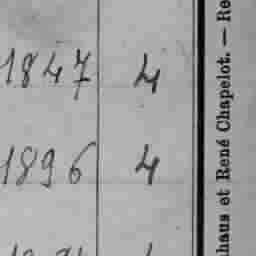 1847 4
1896 4
nhaus et René Chapelot. — Re